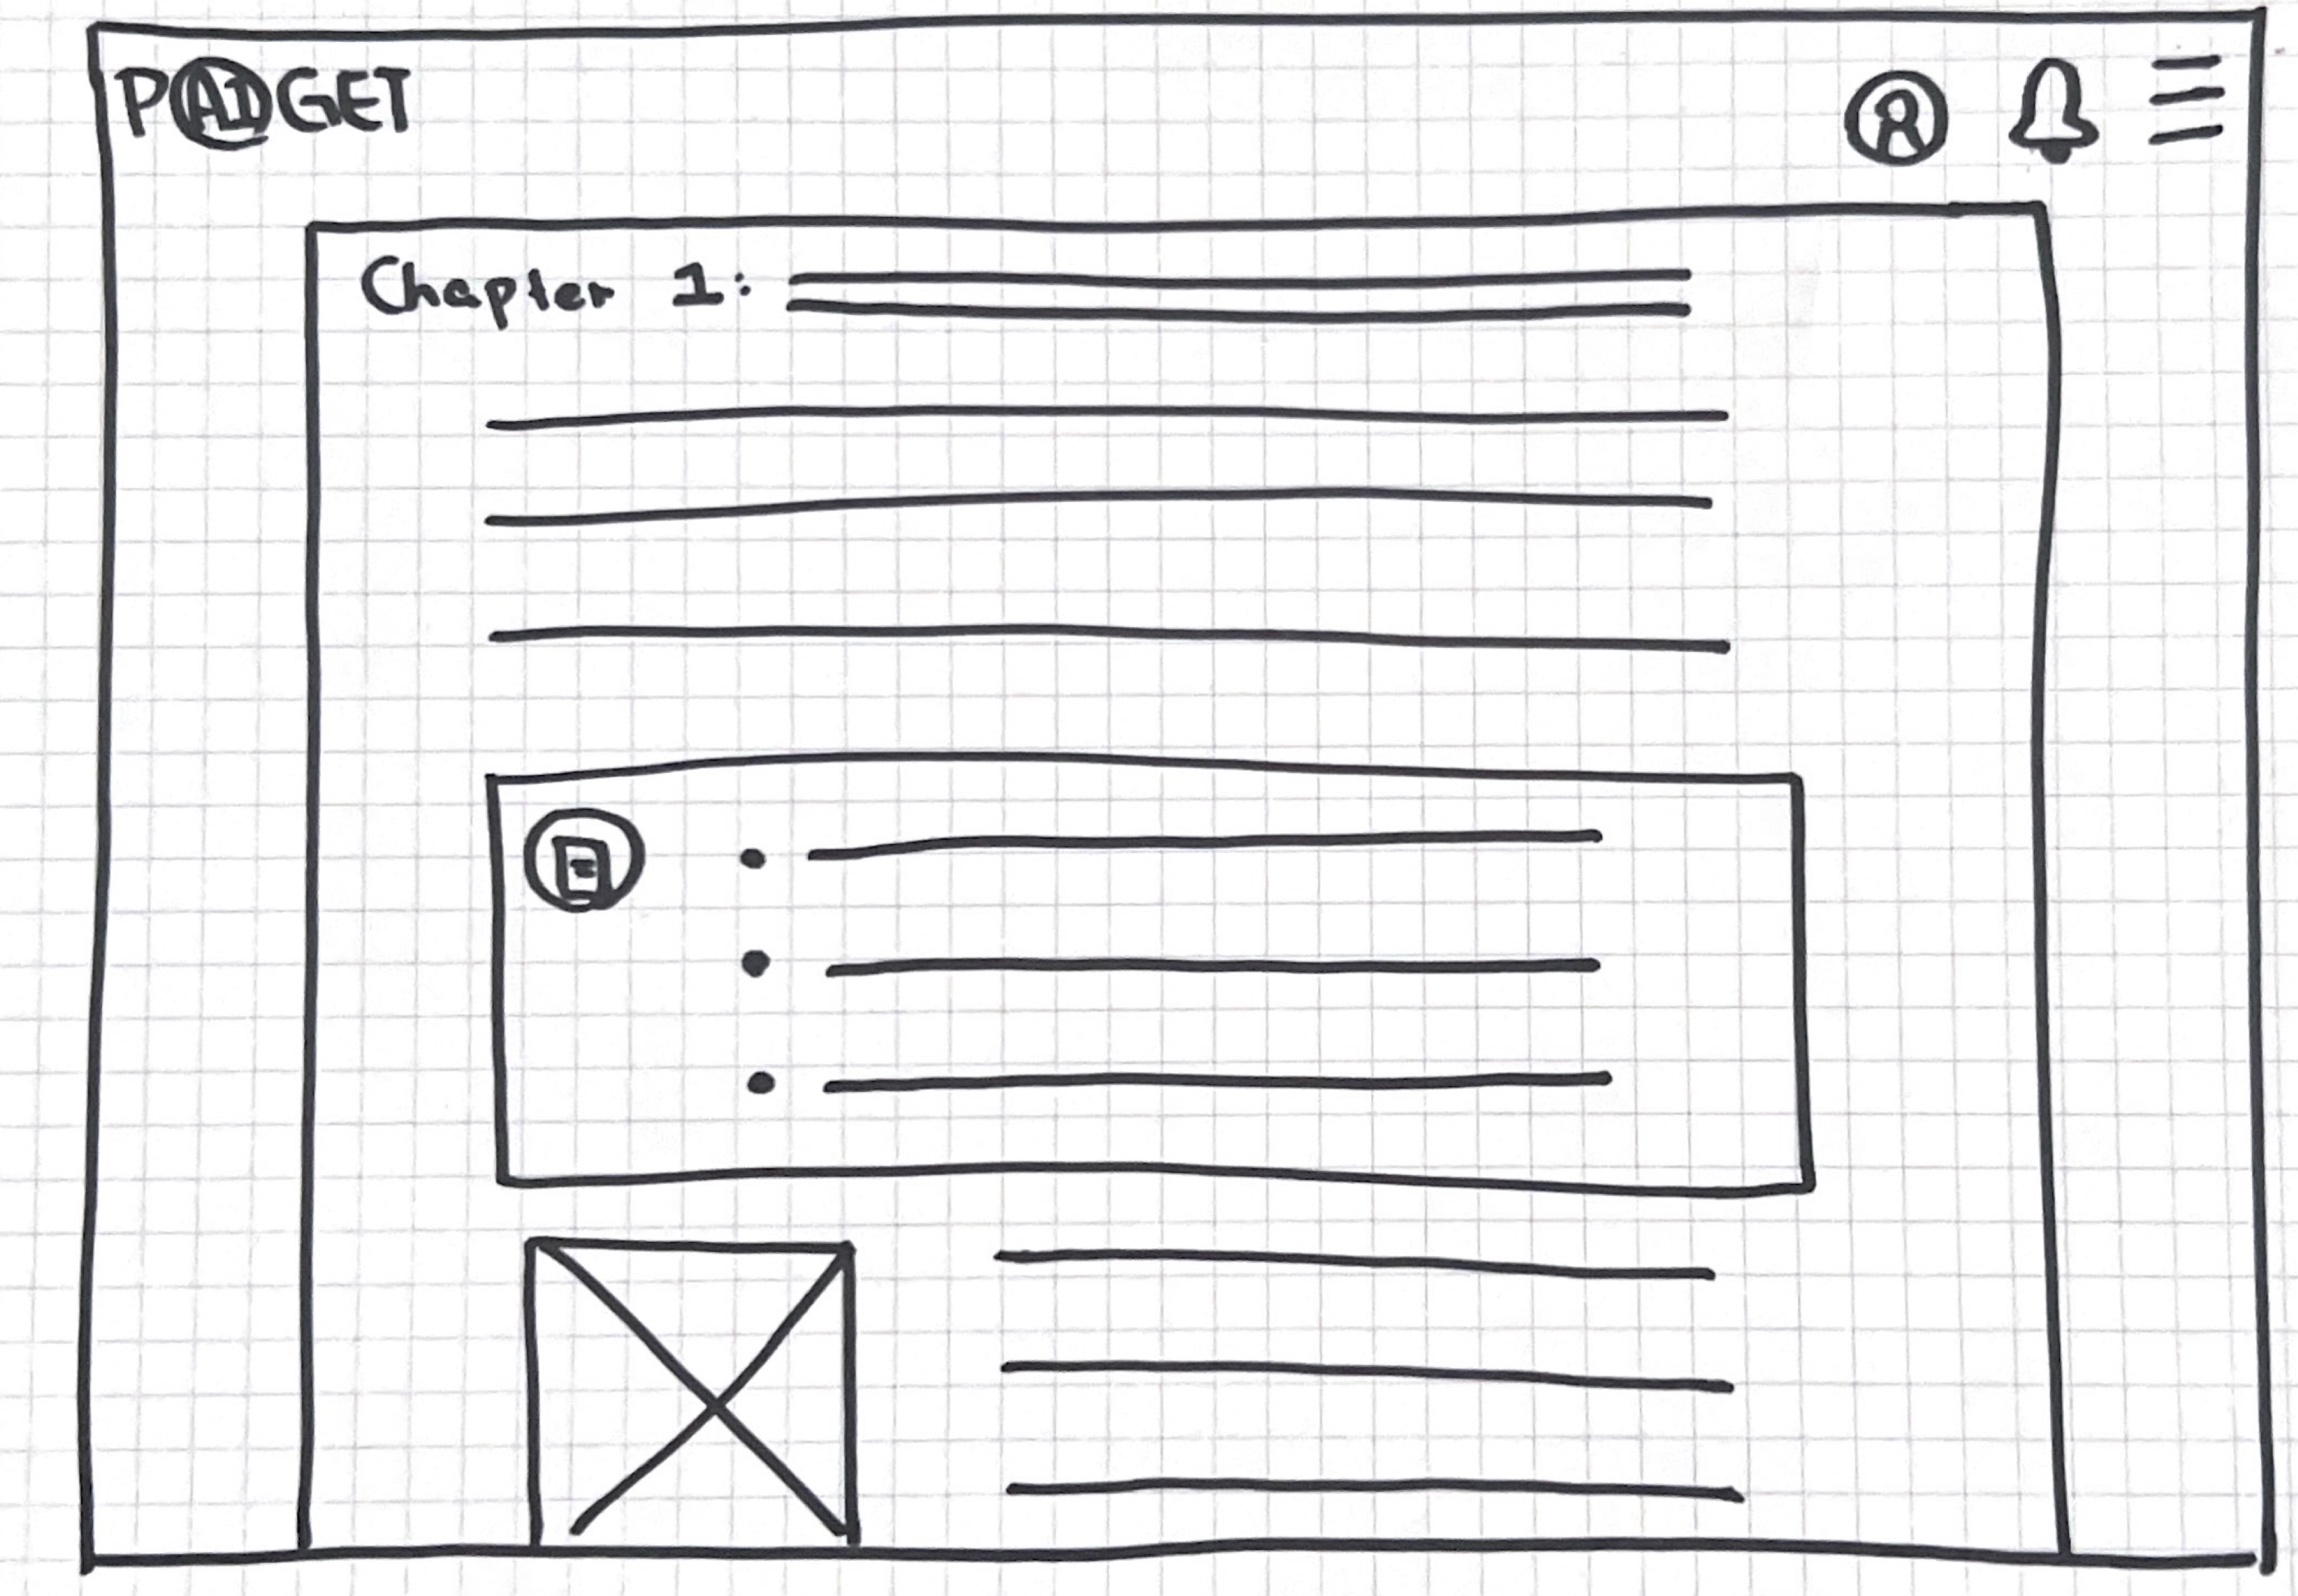 PAIGET
Chapter 1: